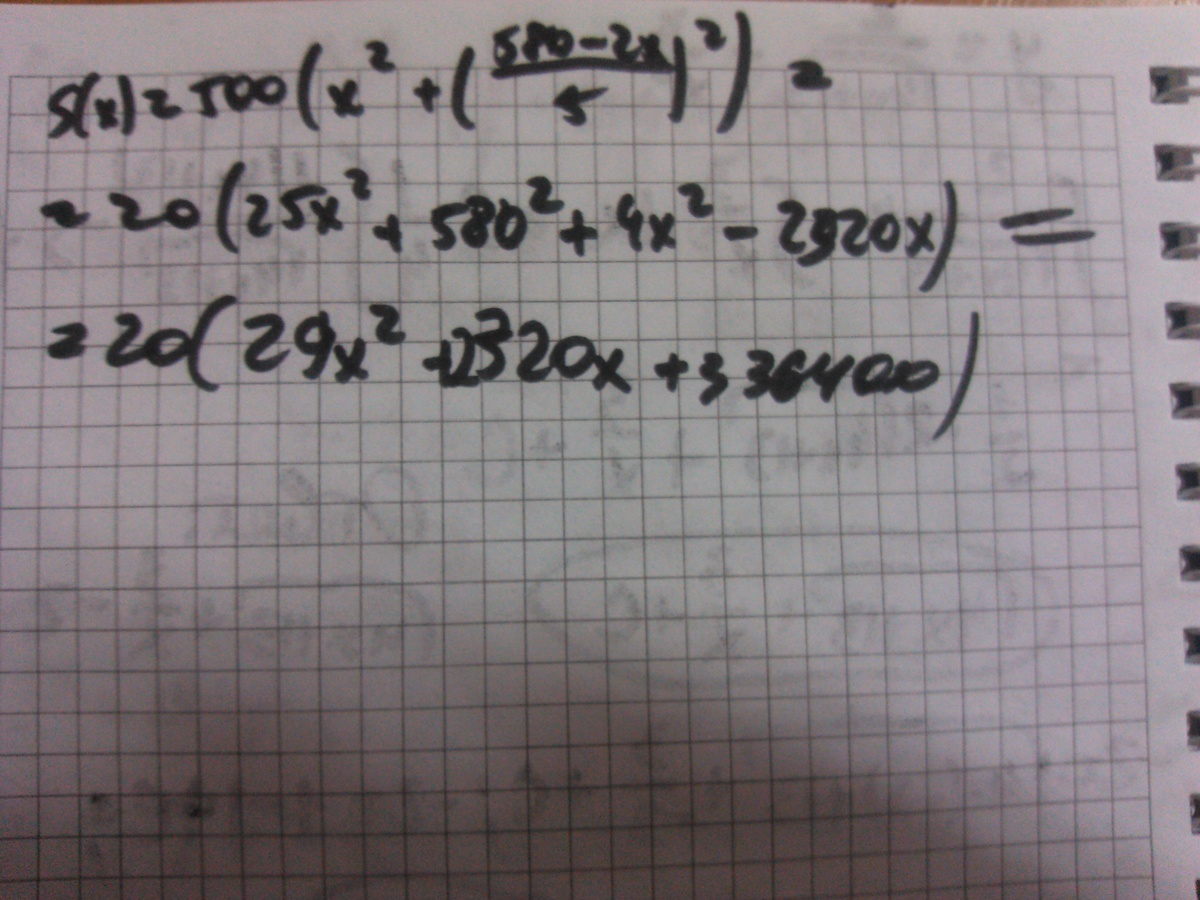 S(x) = 500(x² + ((580-2x)/5)²) =
= 20(25x² + 580² + 4x² - 2320x) =
= 20(29x² - 2320x + 336400)